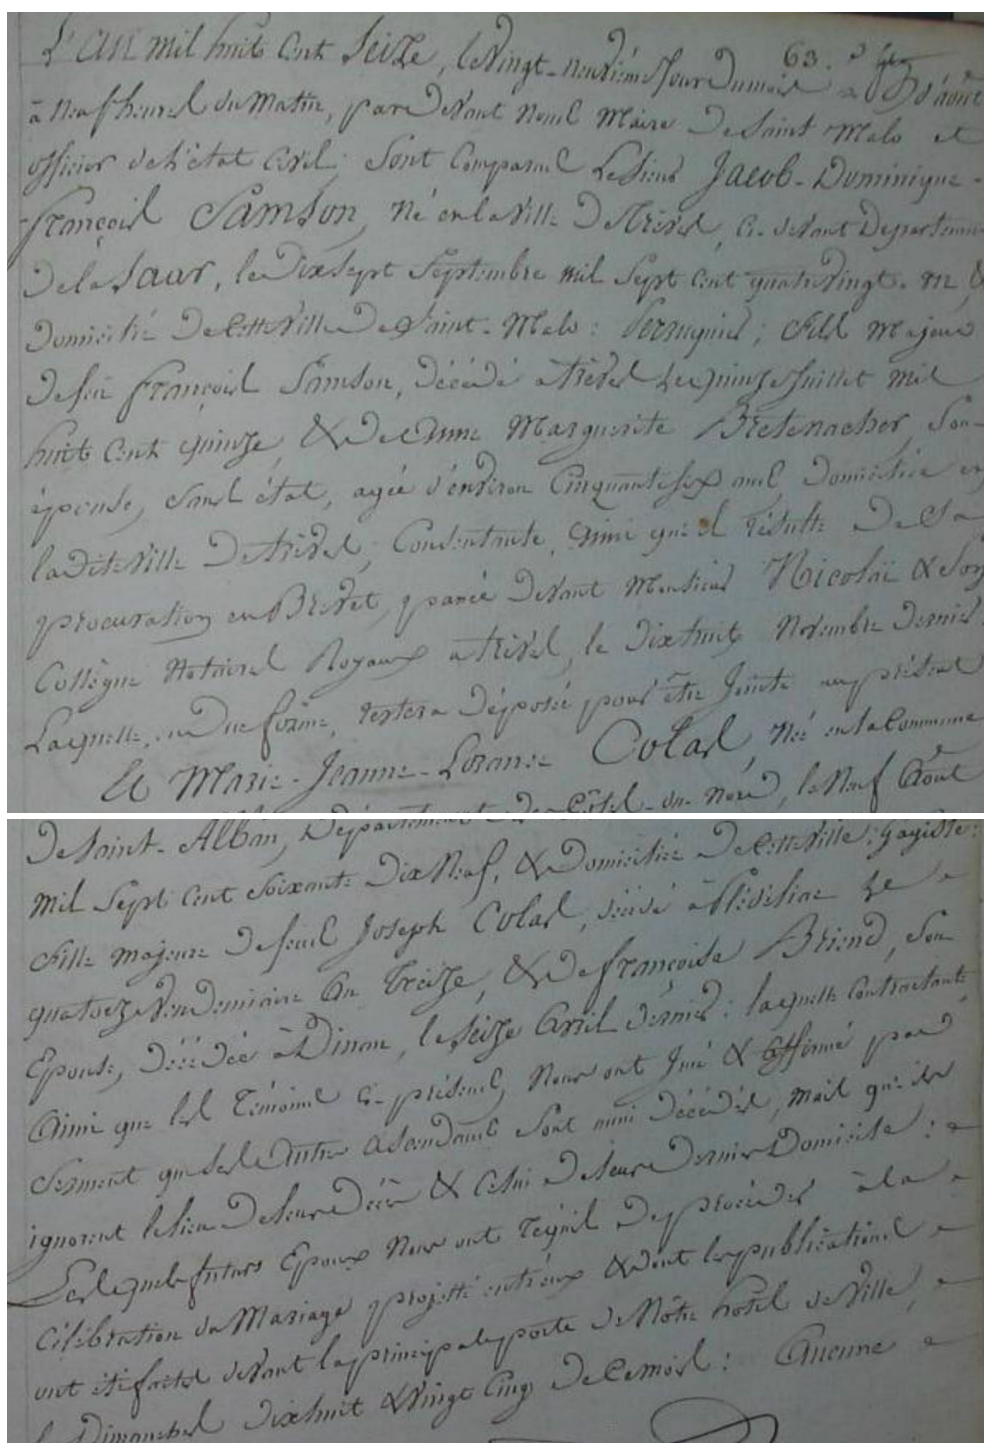 L'an mil huit Cent Seize, le Vingt-neuvième Jour du mois d'août
63.
à Neuf heures du Matin, par devant Nous Maire de Saint Malo et
officier de l'état Civil; Sont Comparus Le Sieur Jacob-Dominique-
-François Samson, Né en la Ville de trèves, Ci-devant Département
de la Saar, le dix Sept Septembre mil Sept Cent quatrevingt-un, &
Domicilié de Cette Ville de Saint-Malo: Perruquier; fils Majeur
de feu François Samson, décédé à trèves Le quinze Juillet mil
huit Cent quinze, & de Anne Marguerite Bretenacher, Son
épouse, Sans état, agée d'environ Cinquante Six ans, Domiciliée en
la dite Ville de trèves; Consentante, ainsi qu'il résulte de Sa
procuration en Brevet, passée Devant Monsieur Nicolaï & Son
Collègue Notaires Royaux à trèves, le dix huit Novembre Dernier,
Laquelle, en due forme, restera déposée pour être Jointe au présent
Et Marie-Jeanne-Loranse Colas, Née en la Commune
de Saint-Alban, Département des Côtes-du-Nord, le Neuf Août
mil Sept Cent Soixante Dix Neuf, & Domiciliée de Cette Ville: gagiste:
fille majeure de feus Joseph Colas, décédé à Plédéliac Le
quatorze Vendemiaire An Treize, & de françoise Briend, Son
Epouse, décédée à Dinan, le Seize Avril dernier: laquelle Contractante
Ainsi que les Témoins Ci-présens, Nous ont Juré & affirmé par
Serment que Ses autres Ascendans Sont aussi décédés, mais qu'ils
ignorent le lieu de leur Décès & Celui de leur Dernier Domicile:
Lesquels futurs Epoux Nous ont requis de procéder à la
Célébration du Mariage projetté entr'eux & dont les publications
ont été faites devant la principale porte de Nôtre hôtel de Ville,
les Dimanches dix huit & Vingt Cinq de Ce mois: Aucune